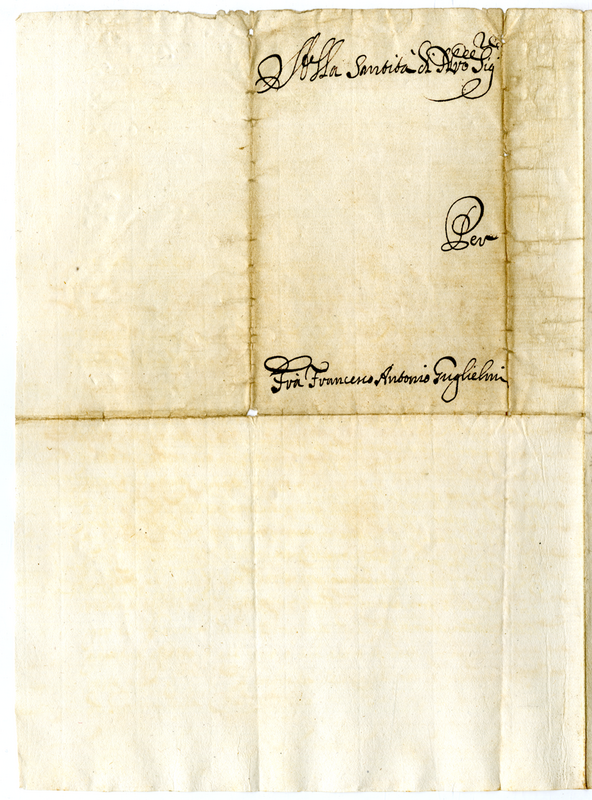 Alla Santità di Nro Sig
Per
Frà Francesco Antonio Guglielmi